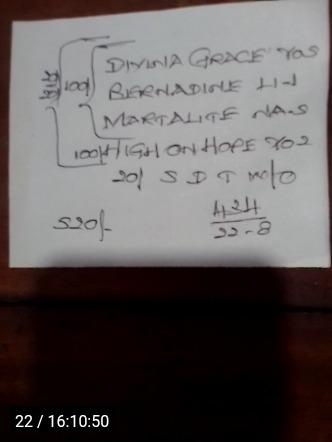 100/ DIVINA GRACE
BERNADINE
MARTALITE NA-S
100/ HIGH ON HOPE 702
20/ S D T W/O
520/-
424
22-8
22 / 16:10:50